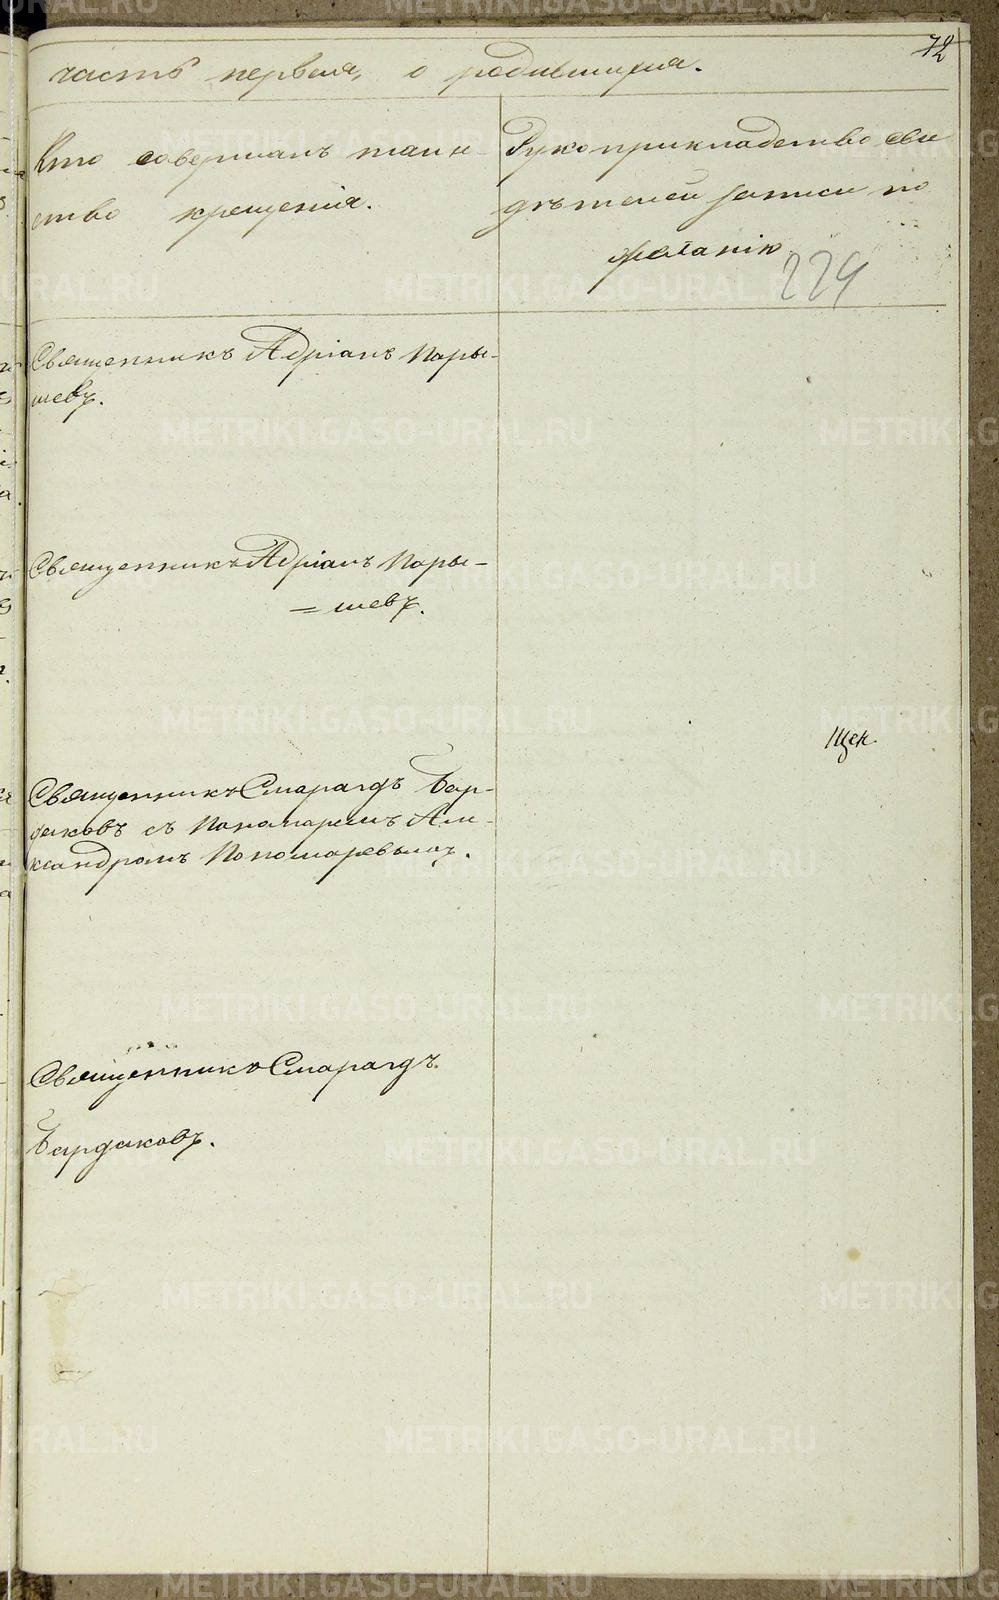 72
часть первая, о родившихся.
Кто совершалъ таин-
ство крещенія.
Рукоприкладство сви
дѣтелей записи по
желанію
229
Священникъ Адріанъ Пары-
шевъ.
Священникъ Адріанъ Пары-
= шевъ.
Щек.
Священникъ Смарагдъ Бар-
даковъ съ Пономаремъ Але-
ксандромъ Пономаревымъ.
Священникъ Смарагдъ
Бардаковъ.
METRIKI.GASO-URAL.RU